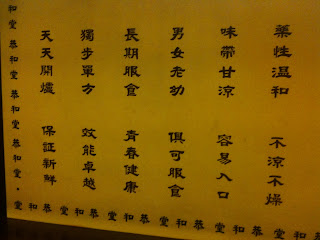 藥性温和 不涼不燥
味帶甘涼 容易入口
男女老幼 俱可服食
長期服食 青春健康
獨步單方 效能卓越
天天開爐 保証新鮮
和堂 恭和堂 恭和堂 恭和堂
和堂 恭和堂 恭和堂 恭和堂 恭和堂